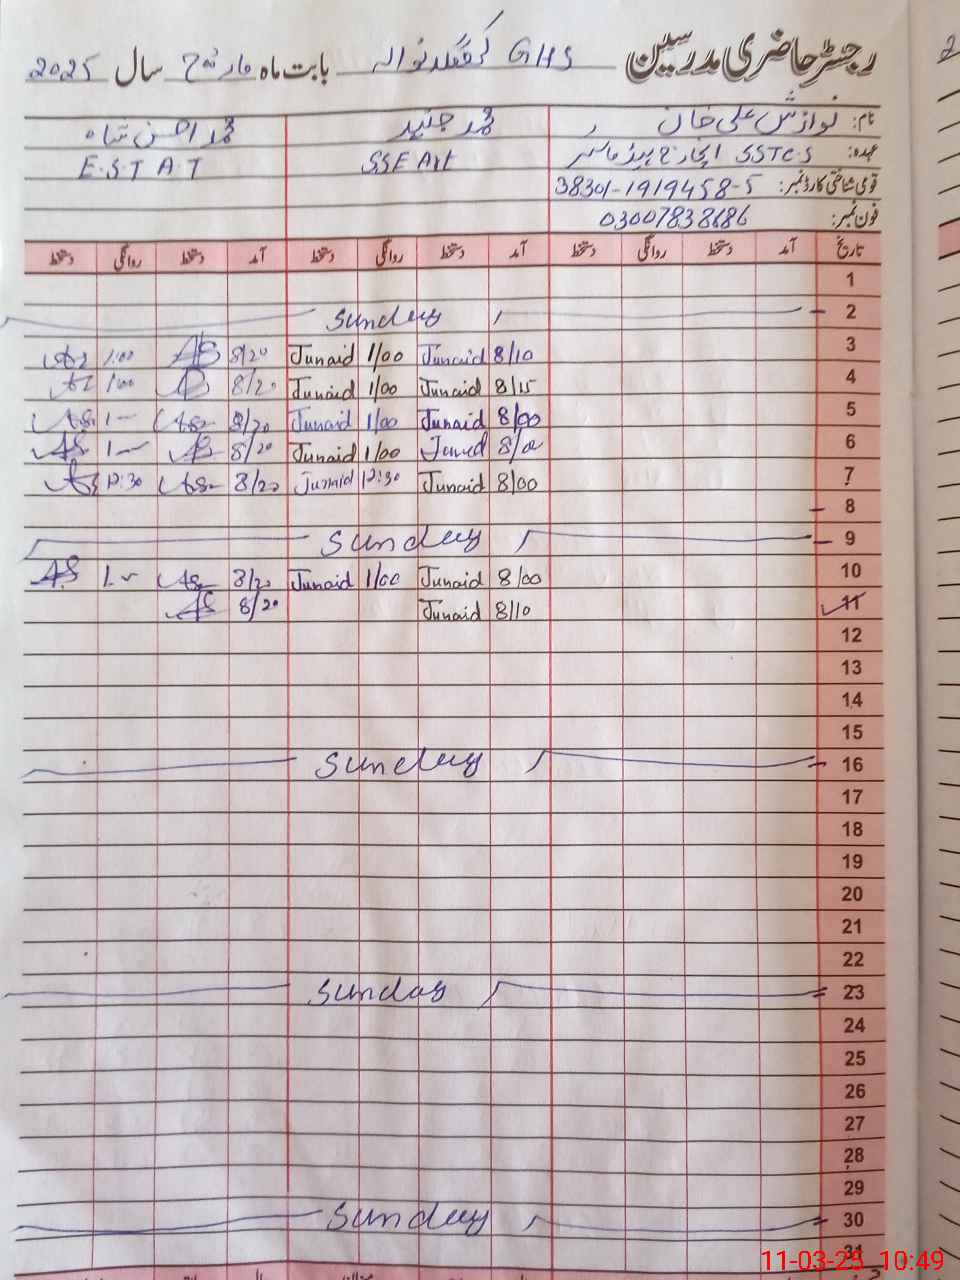 رجسٹر حاضری مدرسین GHS بابت ماہ مارچ سال 2025
نام: نوازش علی خان محمد جنید محمد احسن شاہ
عہدہ: SSTCS انچارج ہیڈ ماسٹر SSE Art E.S.T A.T
قومی شناختی کارڈ نمبر: 38301-1919458-5
فون نمبر: 03007838686
تاریخ آمد دستخط روانگی دستخط آمد دستخط روانگی دستخط آمد دستخط روانگی دستخط
1
2 Sunday
3 8/10 Junaid 1/00 Junaid 8/20 AS 1:00 AS
4 8/15 Junaid 1/00 Junaid 8/20 AS 1:00
5 8/00 Junaid 1/00 Junaid 8/20 AS 1— AS
6 8/00 Junaid 1/00 Junaid 8/20 AS 1— AS
7 8/00 Junaid 12:30 Junaid 8/20 AS 12:30 AS
8
9 Sunday
10 8/00 Junaid 1/00 Junaid 8/20 AS 1— AS
11 8/10 Junaid 8/20 AS
12
13
14
15
16 Sunday
17
18
19
20
21
22
23 Sunday
24
25
26
27
28
29
30 Sunday
31
11-03-25 10:49